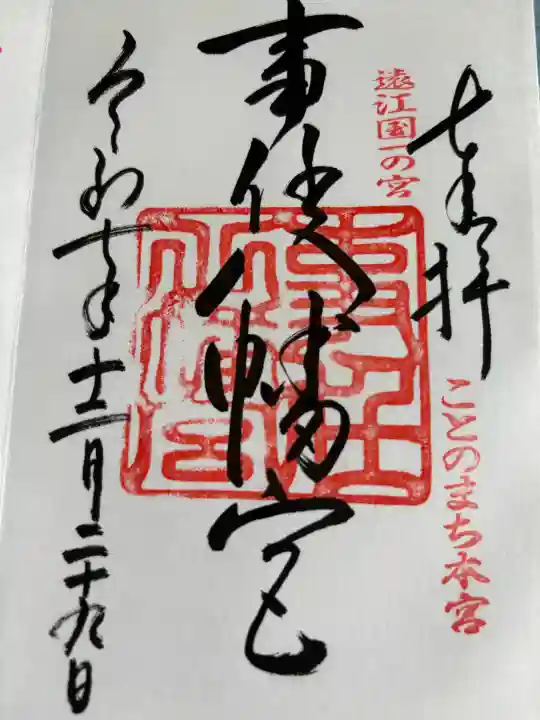 奉拝
遠江国一の宮
ことのまち本宮
事任八幡宮
令和七年十二月二十九日